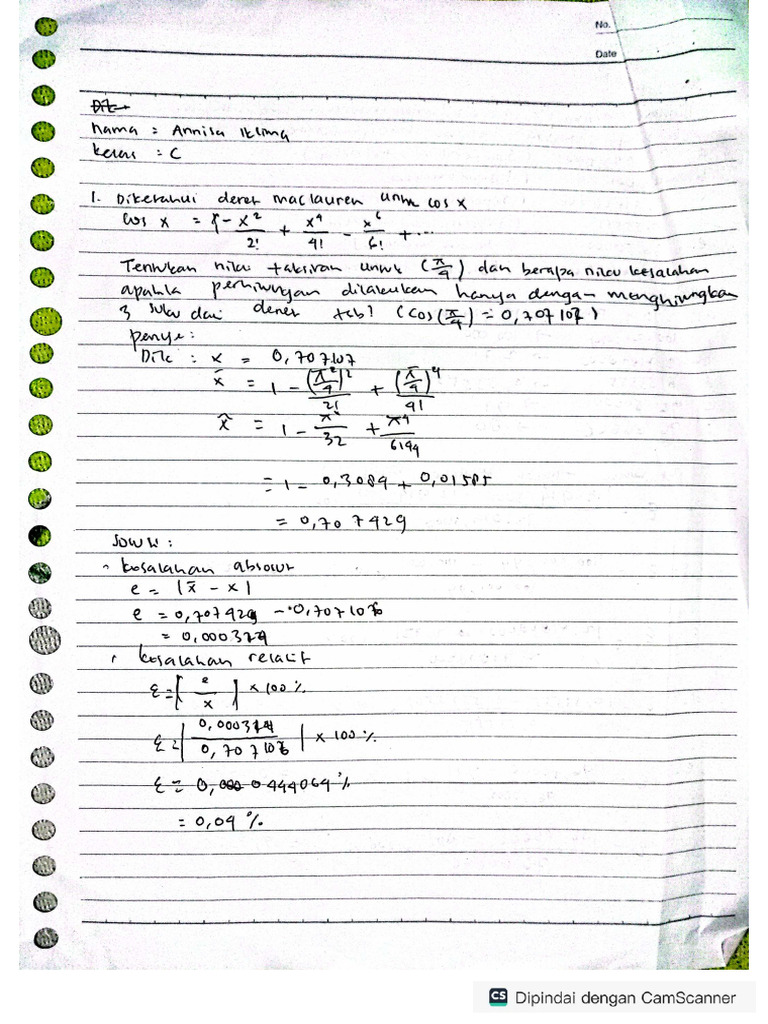 No.
Date
Dik
nama : Annisa Iklima
kelas : C
1. Diketahui deret maclauren untuk cos x
cos x = 1 - x²/2! + x⁴/4! - x⁶/6! + ...
Tentukan nilai taksiran untuk (π/4) dan berapa nilai kesalahan
apabila perhitungan dilakukan hanya dengan menghitungkan
3 suku dari deret tsb? (cos(π/4) = 0,707107)
penye:
Dik : x = 0,707107
x̄ = 1 - (π²/4)²/2! + (π/4)⁴/4!
x̂ = 1 - π²/32 + π⁴/6144
= 1 - 0,3084 + 0,01585
= 0,707429
• kesalahan absolut
e = |x̄ - x|
e = 0,707429 - 0,707107
= 0,000322
• kesalahan relatif
ε = |e/x| x 100 %
ε = |0,000322/0,707107| x 100 %
ε = 0,000 0444064 %
= 0,04 %
CS Dipindai dengan CamScanner